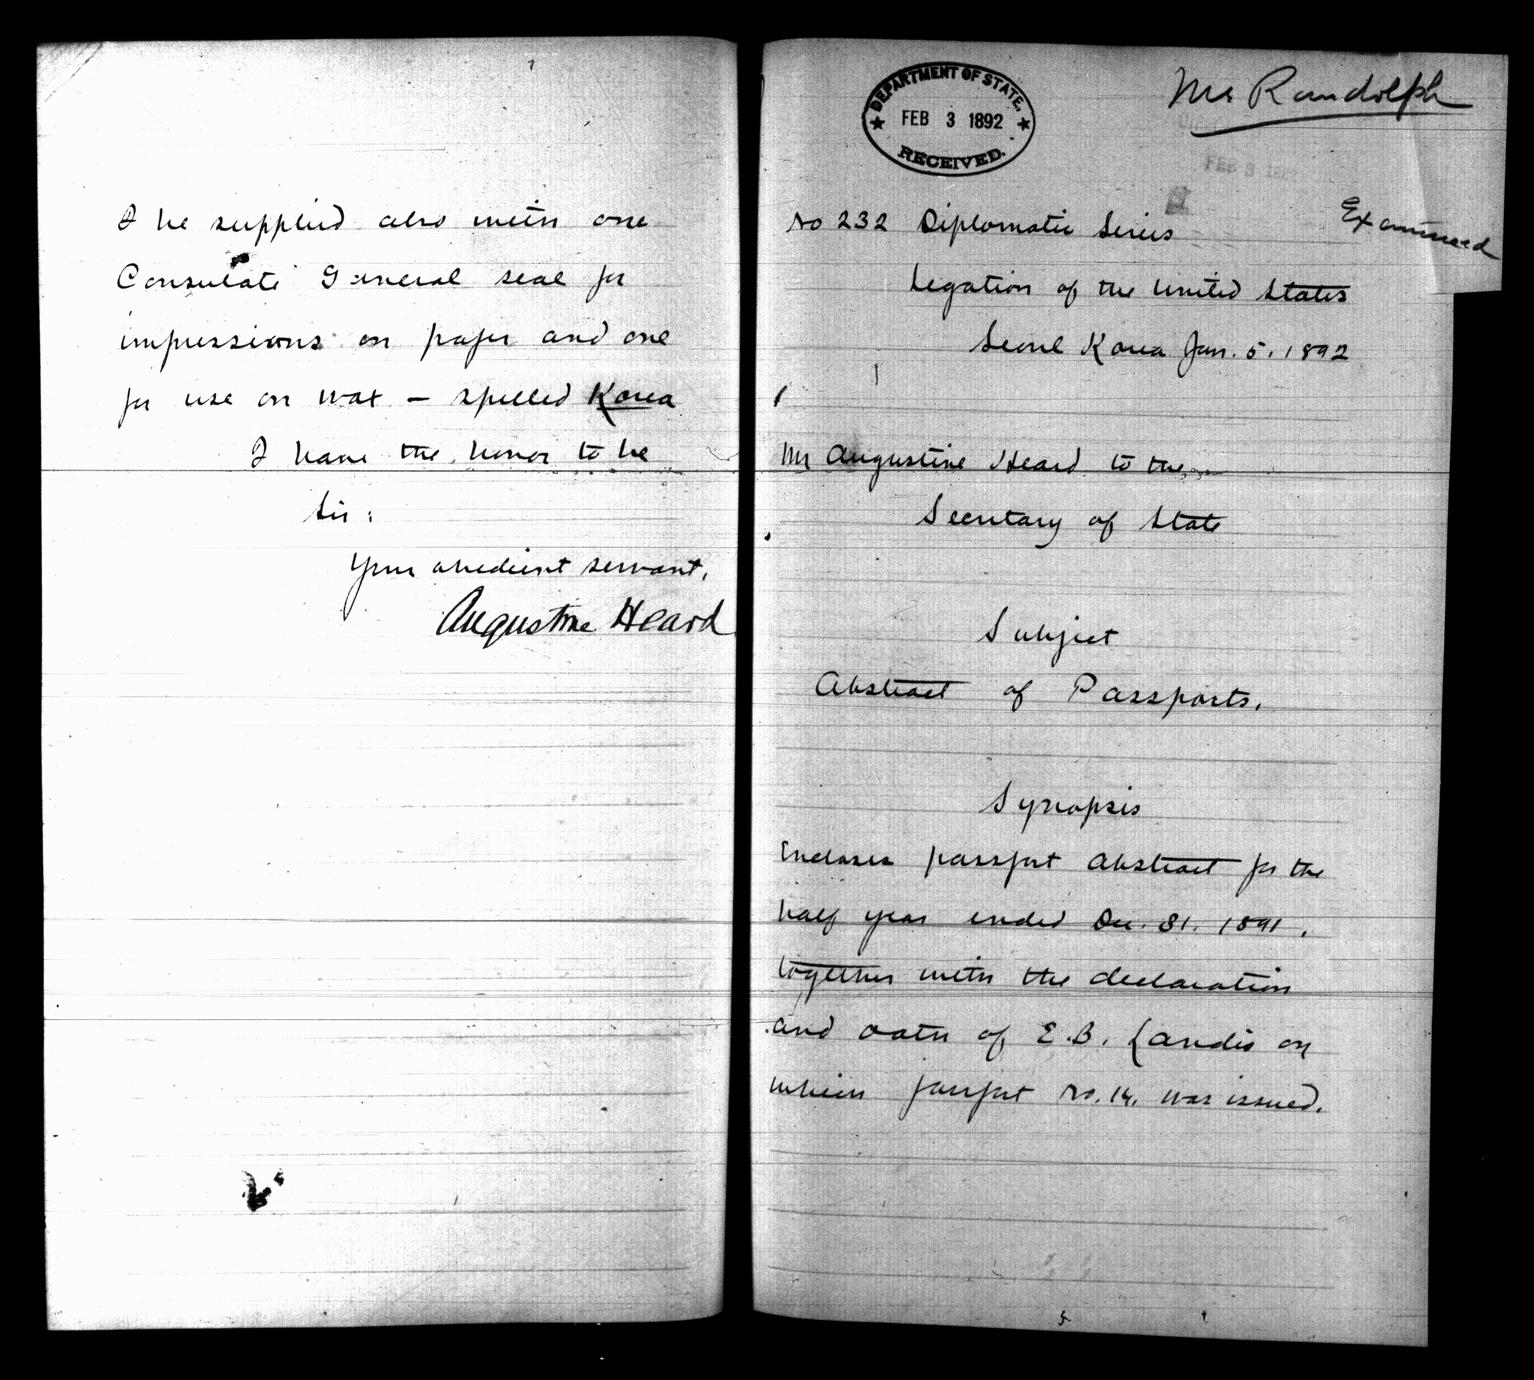 I be supplied also with one
Consulate General seal for
impressions on paper and one
for use on wax — spelled Korea
I have the honor to be
Sir:
Your obedient servant,
Augustine Heard
DEPARTMENT OF STATE,
FEB 3 1892
RECEIVED.
Mr Randolph
FEB 3 1892
Examined
No 232 Diplomatic Series
Legation of the United States
Seoul Korea Jan. 5. 1892
Mr Augustine Heard to the
Secretary of State
Subject
Abstract of Passports.
Synopsis
Encloses passport abstract for the
half year ended Dec. 31. 1891.
together with the declaration
and oath of E.B. Landis on
which passport No. 14. was issued.